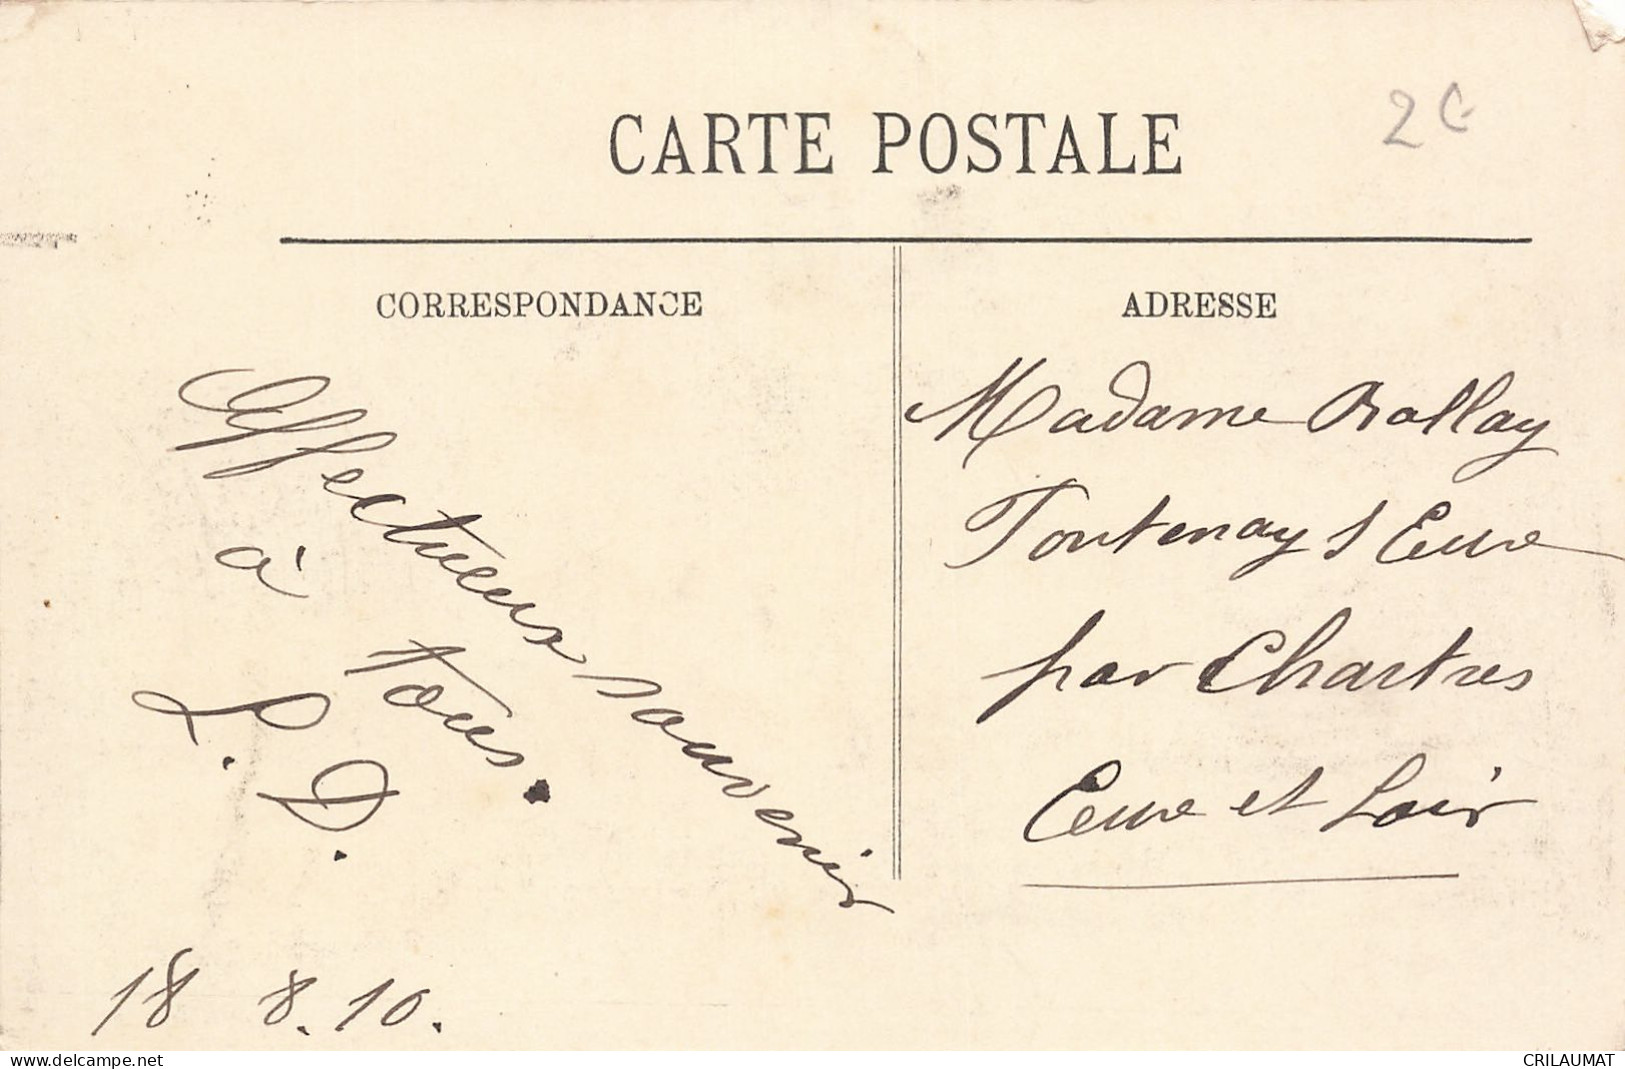 CARTE POSTALE
2€
CORRESPONDANCE
ADRESSE
Affectueux souvenir
à tous.
L. D.
18 8. 10.
Madame Rollay
Fontenay s Eure
par Chartres
Eure et Loir
www.delcampe.net
CRILAUMAT